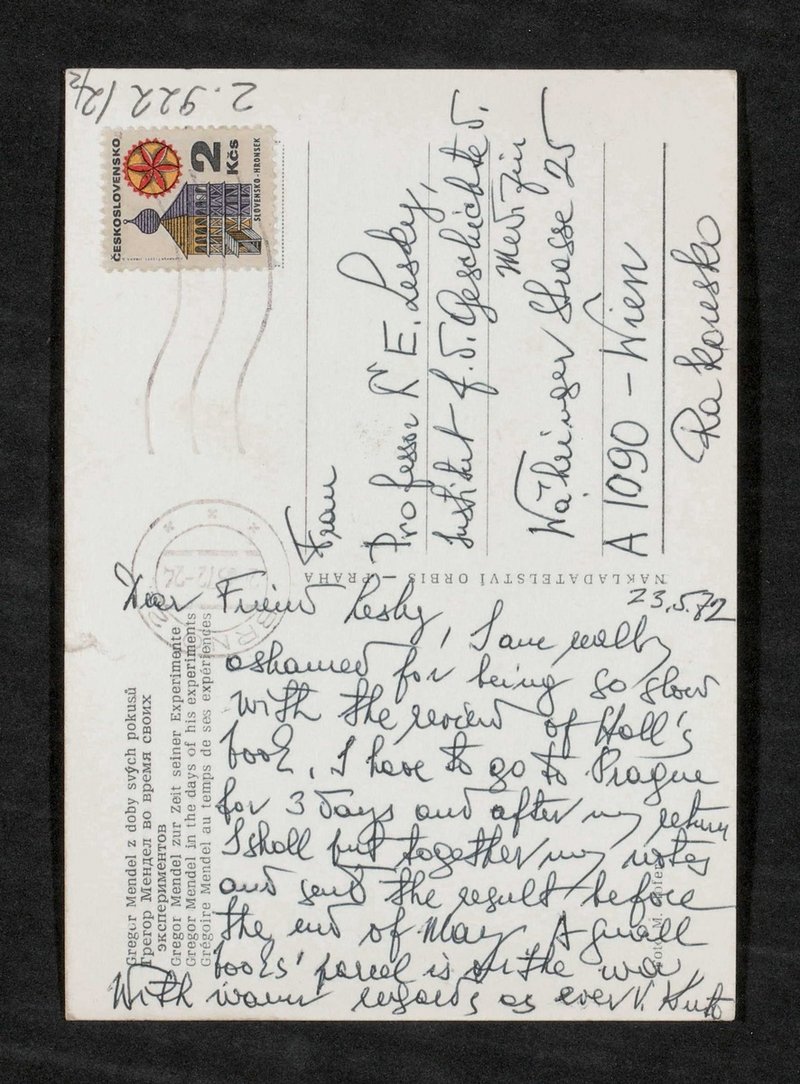 2.922/2/2
ČESKOSLOVENSKO
2 Kčs
SLOVENSKO - HRONSEK
BRNO
Frau
Professor Dr E. Lesky,
Institut f. d. Geschichte d.
Medizin
Währinger Strasse 25
A 1090 - Wien
Rakousko
NAKLADATELSTVÍ ORBIS - PRAHA
Gregor Mendel z doby svých pokusů
Грегор Мендел во время своих
экспериментов
Gregor Mendel zur Zeit seiner Experimente
Gregor Mendel in the days of his experiments
Grégoire Mendel au temps de ses expériences
23.5.72
Dear Friend Lesky, I am really
ashamed for being so slow
with the review of Hall's
book. I have to go to Prague
for 3 days and after my return
I shall put together my notes
and send the result before
the end of May. A small
books' parcel is on the way.
With warm regards as ever V.